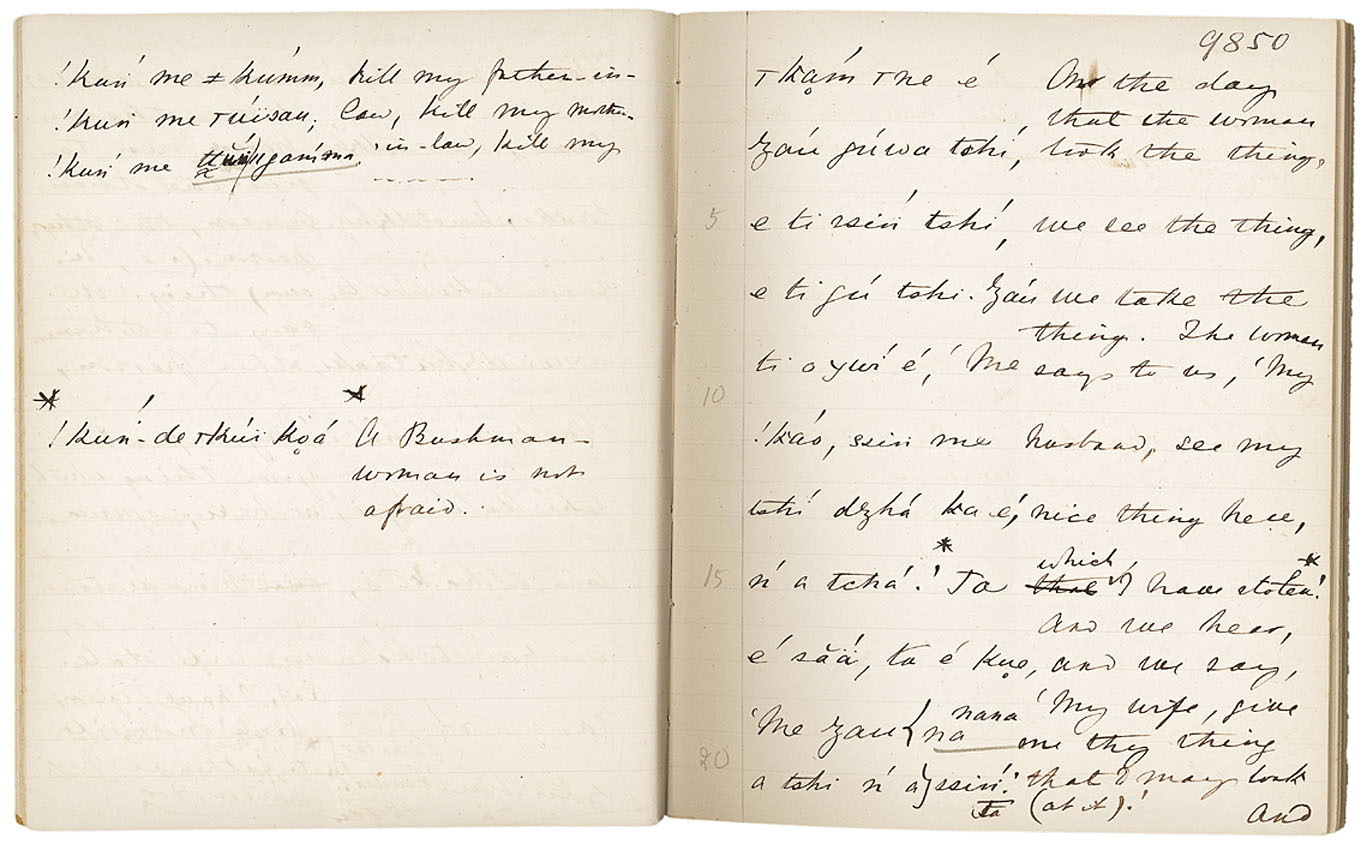 !kuń me ǂkúmm, kill my father-in-
!kuń me túísau; law, kill my mother-
!kuń me in-law, kill my
* *
!kuń-de tkúï ko̯á A Bushman-
woman is not
afraid.
9850
tka̯ḿ t ne é On the day
that the woman
gúwa tshí, took the thing,
5 e ti tshí, we see the thing,
e ti gú tshi. we take the
thing. The woman
ti o é, 'Me says to us, 'My
10
!káo, ssiń me husband, see my
tshí dzhá ka é, nice thing here,
* which *
15 ń a tchá.' Ta that I have stolen!'
And we hear,
é sāá, ta é ko̯e, and we say,
nana 'My wife, give
'Me na me thy thing
20
a tshi ń a ssiń.' that I may look
ta (at it).' And